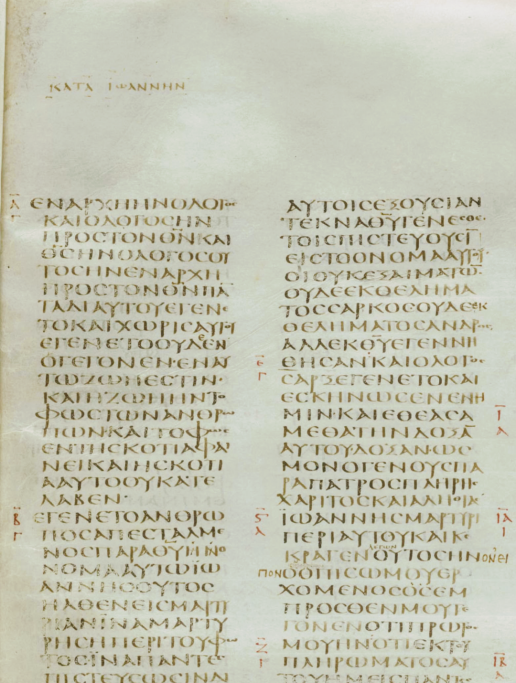 ΚΑΤΑ ΙΩΑΝΝΗΝ
Α
Γ
ΕΝΑΡΧΗΗΝΟΛΟΓΟϹ
ΚΑΙΟΛΟΓΟϹΗΝ
ΠΡΟϹΤΟΝΘ̅Ν̅ΚΑΙ
Θ̅Ϲ̅ΗΝΟΛΟΓΟϹΟΥ
ΤΟϹΗΝΕΝΑΡΧΗ
ΠΡΟϹΤΟΝΘ̅Ν̅ΠΑ
ΤΑΔΙΑΥΤΟΥΕΓΕΝΕ
ΤΟΚΑΙΧΩΡΙϹΑΥΤΟΥ
ΕΓΕΝΕΤΟΟΥΔΕΝ
ΟΓΕΓΟΝΕΝΕΝΑΥ
ΤΩΖΩΗΕϹΤΙΝ·
ΚΑΙΗΖΩΗΗΝΤΟ
ΦΩϹΤΩΝΑΝΘΡΩ
ΠΩΝ·ΚΑΙΤΟΦΩϹ
ΕΝΤΗϹΚΟΤΙΑΦΑΙ
ΝΕΙΚΑΙΗϹΚΟΤΙ
ΑΑΥΤΟΟΥΚΑΤΕ
ΛΑΒΕΝ·
Β
Γ
ΕΓΕΝΕΤΟΑΝΘΡΩ
ΠΟϹΑΠΕϹΤΑΛΜΕ
ΝΟϹΠΑΡΑΘΥΗΝΟ
ΝΟΜΑΑΥΤΩΙΩ
ΑΝΝΗϹΟΥΤΟϹ
ΗΛΘΕΝΕΙϹΜΑΡΤΥ
ΡΙΑΝΙΝΑΜΑΡΤΥ
ΡΗϹΗΠΕΡΙΤΟΥΦΩ
ΤΟϹΙΝΑΠΑΝΤΕϹ
ΠΙϹΤΕΥϹΩϹΙΝΔΙ
ΑΥΤΟΙϹΕΞΟΥϹΙΑΝ
ΤΕΚΝΑΘ̅Υ̅ΓΕΝΕϹΘΕ
ΤΟΙϹΠΙϹΤΕΥΟΥϹΙ
ΕΙϹΤΟΟΝΟΜΑΑΥΤΟΥ
ΟΙΟΥΚΕΞΑΙΜΑΤΩ̅
ΟΥΔΕΕΚΘΕΛΗΜΑ
ΤΟϹϹΑΡΚΟϹΟΥΔΕΕΚ
ΘΕΛΗΜΑΤΟϹΑΝΔΡΟϹ
ΑΛΛΕΚΘ̅Υ̅ΕΓΕΝΝΗ
Ε
Γ
ΘΗϹΑΝ·ΚΑΙΟΛΟΓΟϹ
ϹΑΡΞΕΓΕΝΕΤΟΚΑΙ
ΕϹΚΗΝΩϹΕΝΕΝΗ
Ι
Α
ΜΙΝ·ΚΑΙΕΘΕΑϹΑ
ΜΕΘΑΤΗΝΔΟΞΑ̅
ΑΥΤΟΥΔΟΞΑΝΩϹ
ΜΟΝΟΓΕΝΟΥϹΠΑ
ΡΑΠΑΤΡΟϹΠΛΗΡΗϹ
ΧΑΡΙΤΟϹΚΑΙΑΛΗΘΙΑϹ
Ϛ
Α
ΙΩΑΝΝΗϹΜΑΡΤΥΡΙ
ΠΕΡΙΑΥΤΟΥΚΑΙΚΕ
ΚΡΑΓΕΝΟΥΤΟϹΗΝΟΝΕΙ
ΠΟΝΟΟΠΙϹΩΜΟΥΕΡ
ΧΟΜΕΝΟϹΟϹΕΜ
ΠΡΟϹΘΕΝΜΟΥΓΕ
ΓΟΝΕΝΟΤΙΠΡΩΤΟϹ
Ζ
Γ
ΜΟΥΗΝΟΤΙΕΚΤΟΥ
ΠΛΗΡΩΜΑΤΟϹΑΥ
ΤΟΥΗΜΕΙϹΠΑΝΤΕϹ